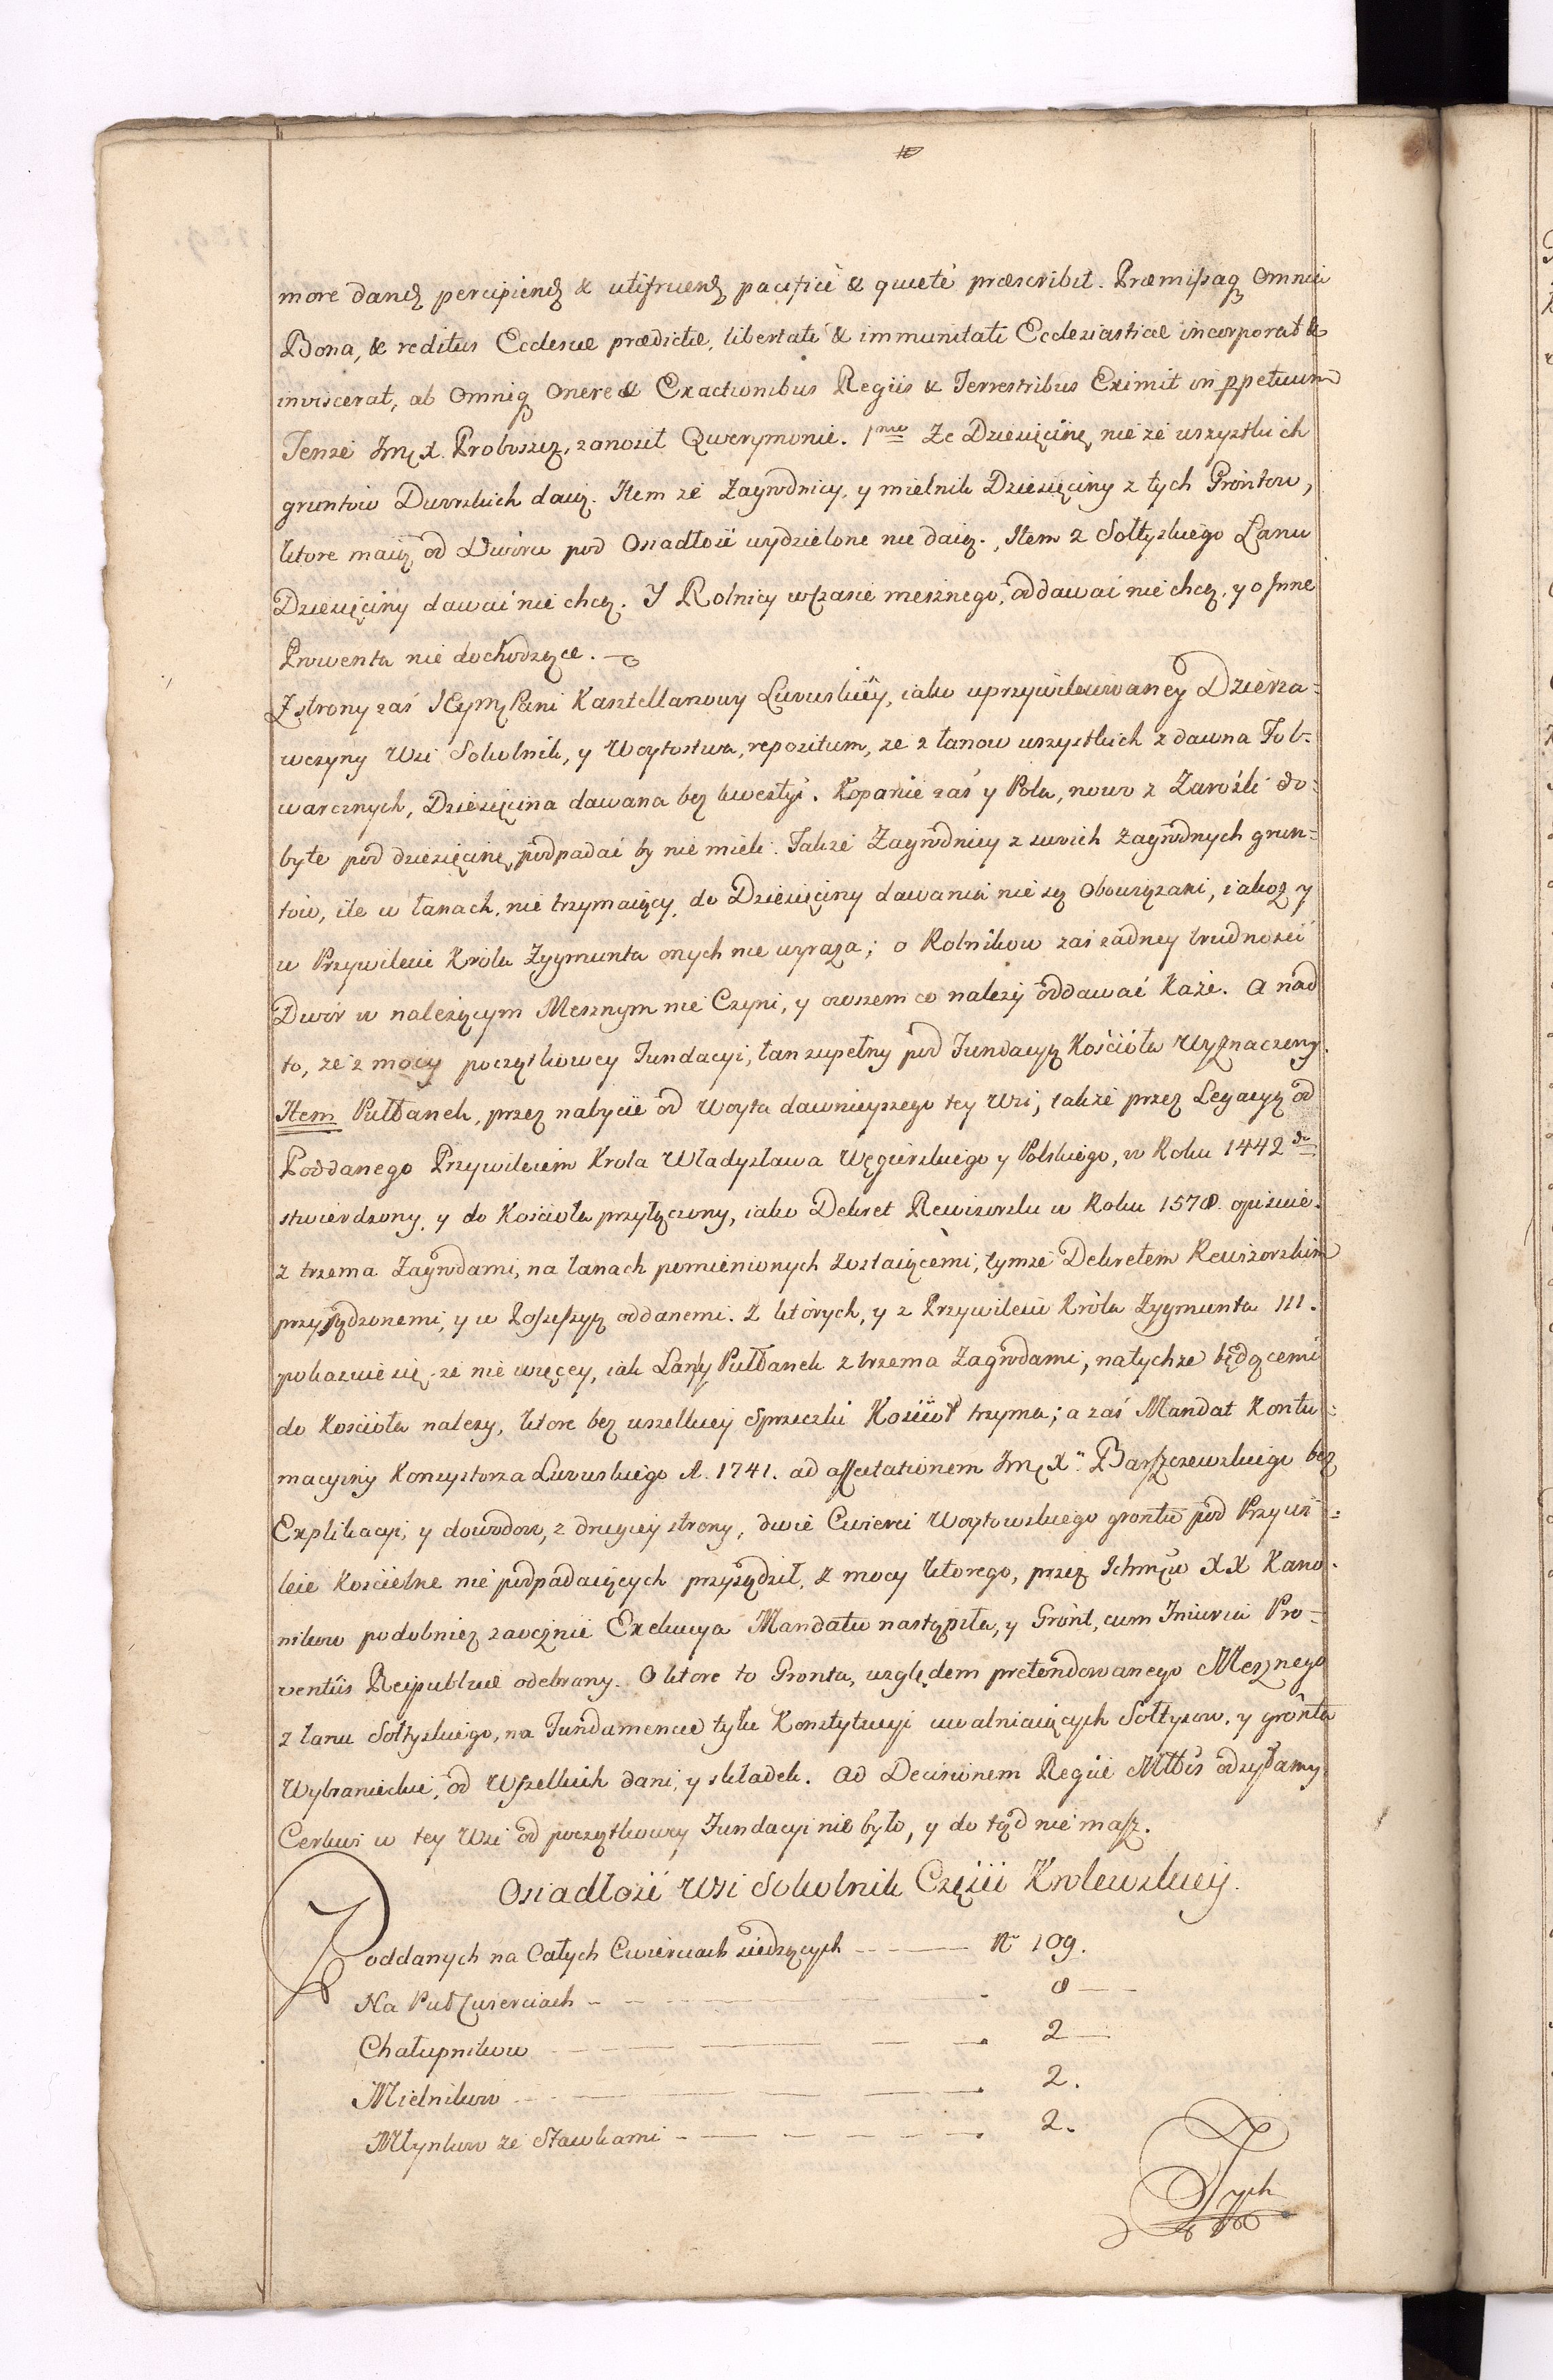 more dandȝ percipiendȝ & utifruendȝ pacificè & quietè præscribit. Præmissaqȝ Omnia
Bona, & reditus Ecclesiæ prædictæ, libertati & immunitati Ecclesiasticæ incorporat &
inviscerat, ab Omniqȝ Onere & Exactionibus Regiis & Terrestribus Eximit in ppetuum
Tenże Jmę X. Proboszcz, zanosił Querymonie. 1mo Ze Dziesięcinę nie ze wszystkich
gruntow Dworskich daią. Item ze Zagrodnicy, y mielnik Dziesięciny z tych Grontow,
ktore maią od Dworu pod Osiadłość wydzielone nie daią. Item z Sołtyskiego Łanu
Dziesięciny dawać nie chcą. Y Rolnicy w czasie mesznego, oddawać nie chcą, y o Jnne
Prowenta nie dochodzące.
Z strony zaś JEymę Pani Kasztellanowy Lwowskiey, iako uprzywileiowaney Dzierża=
wczyny Wsi Sokolnik, y Woytostwa, repositum, ze z łanow wszystkich z dawna Fol-
warcznych, Dziesięcina dawana bez kwestyi. Kopanie zaś y Pola, nowo z Zarośli do=
byte pod dziesięcinę podpadać by nie mieli. Takze Zagrodnicy z swoich zagrodnych grun=
tow, ile w łanach, nie trzymaiący, do Dziesięciny dawania nie są Obowiązani, iakoż y
w Przywileiu Króla Zygmunta onych nie wyraża; o Rolnikow zaś żadney trudności
Dwór w należącym Mesznym nie Czyni, y owszem co nalezy oddawać Każe. A nad
to, ze z mocy początkowey Fundacyi, łan zupełny pod Fundacyą Kościoła Wyznaczony.
Item Pułłanek, przez nabycie od Woyta dawnieyszego tey Wsi, takze przez Legacyą od
Poddanego Przywileiem Krola Władysława Węgierskiego y Polskiego, w Roku 1442do
stwierdzony, y do Kościoła przyłączony, iako Dekret Rewizorski w Roku 1578. opiewa.
z trzema Zagrodami, na łanach pomienionych zostaiącemi, tymże Dekretem Rewizorskim
przysądzonemi, y w Possessyą oddanemi. Z których, y z Przywileiu Króla Zygmunta III.
pokazuie się, ze nie więcey, iak Łan y Pułłanek z trzema Zagrodami, na tychze będącemi
do Kościoła nalezy, ktore bez wszelkiey Sprzeczki Kościoł trzyma; a zaś Mandat Kontu=
macyiny Konsystorza Lwowskiego A. 1741. ad affectationem Jmę X. Barszczewskiego bez
Explikacyi, y dowodow, z drugiey strony, dwie Cwierci Woytowskiego grontu pod Przywi=
leie Kościelne nie podpadaiących przysądził, z mocy ktorego, przez Ichmću XX Kano-
nikow podobnież zaocznie Exekucya Mandatu nastąpiła, y Gront, cum Iniuria Pro=
ventûs Reipublicæ odebrany. O ktore to Gronta, względem pretendowanego Mesznego
z łanu Sołtyskiego, na Fundamencie tylu Konstytucyi uwalniaiących Sołtysow, y gronta
Wybranieckie, od Wszelkich dani, y składek. ad Decisionem Regiæ Mttis odsyłamy
Cerkwi w tey Wsi od początkowey Fundacyi nie było, y do tąd nie masz.
Osiadłość Wsi Sokolnik Części Krolewskiey.
Poddanych na Całych Cwierciach siedzących N 109.
Na Puł Cwierciach 8
Chałupnikow 2
Mielnikow 2.
Młynkow ze Stawkami 2.
Tych